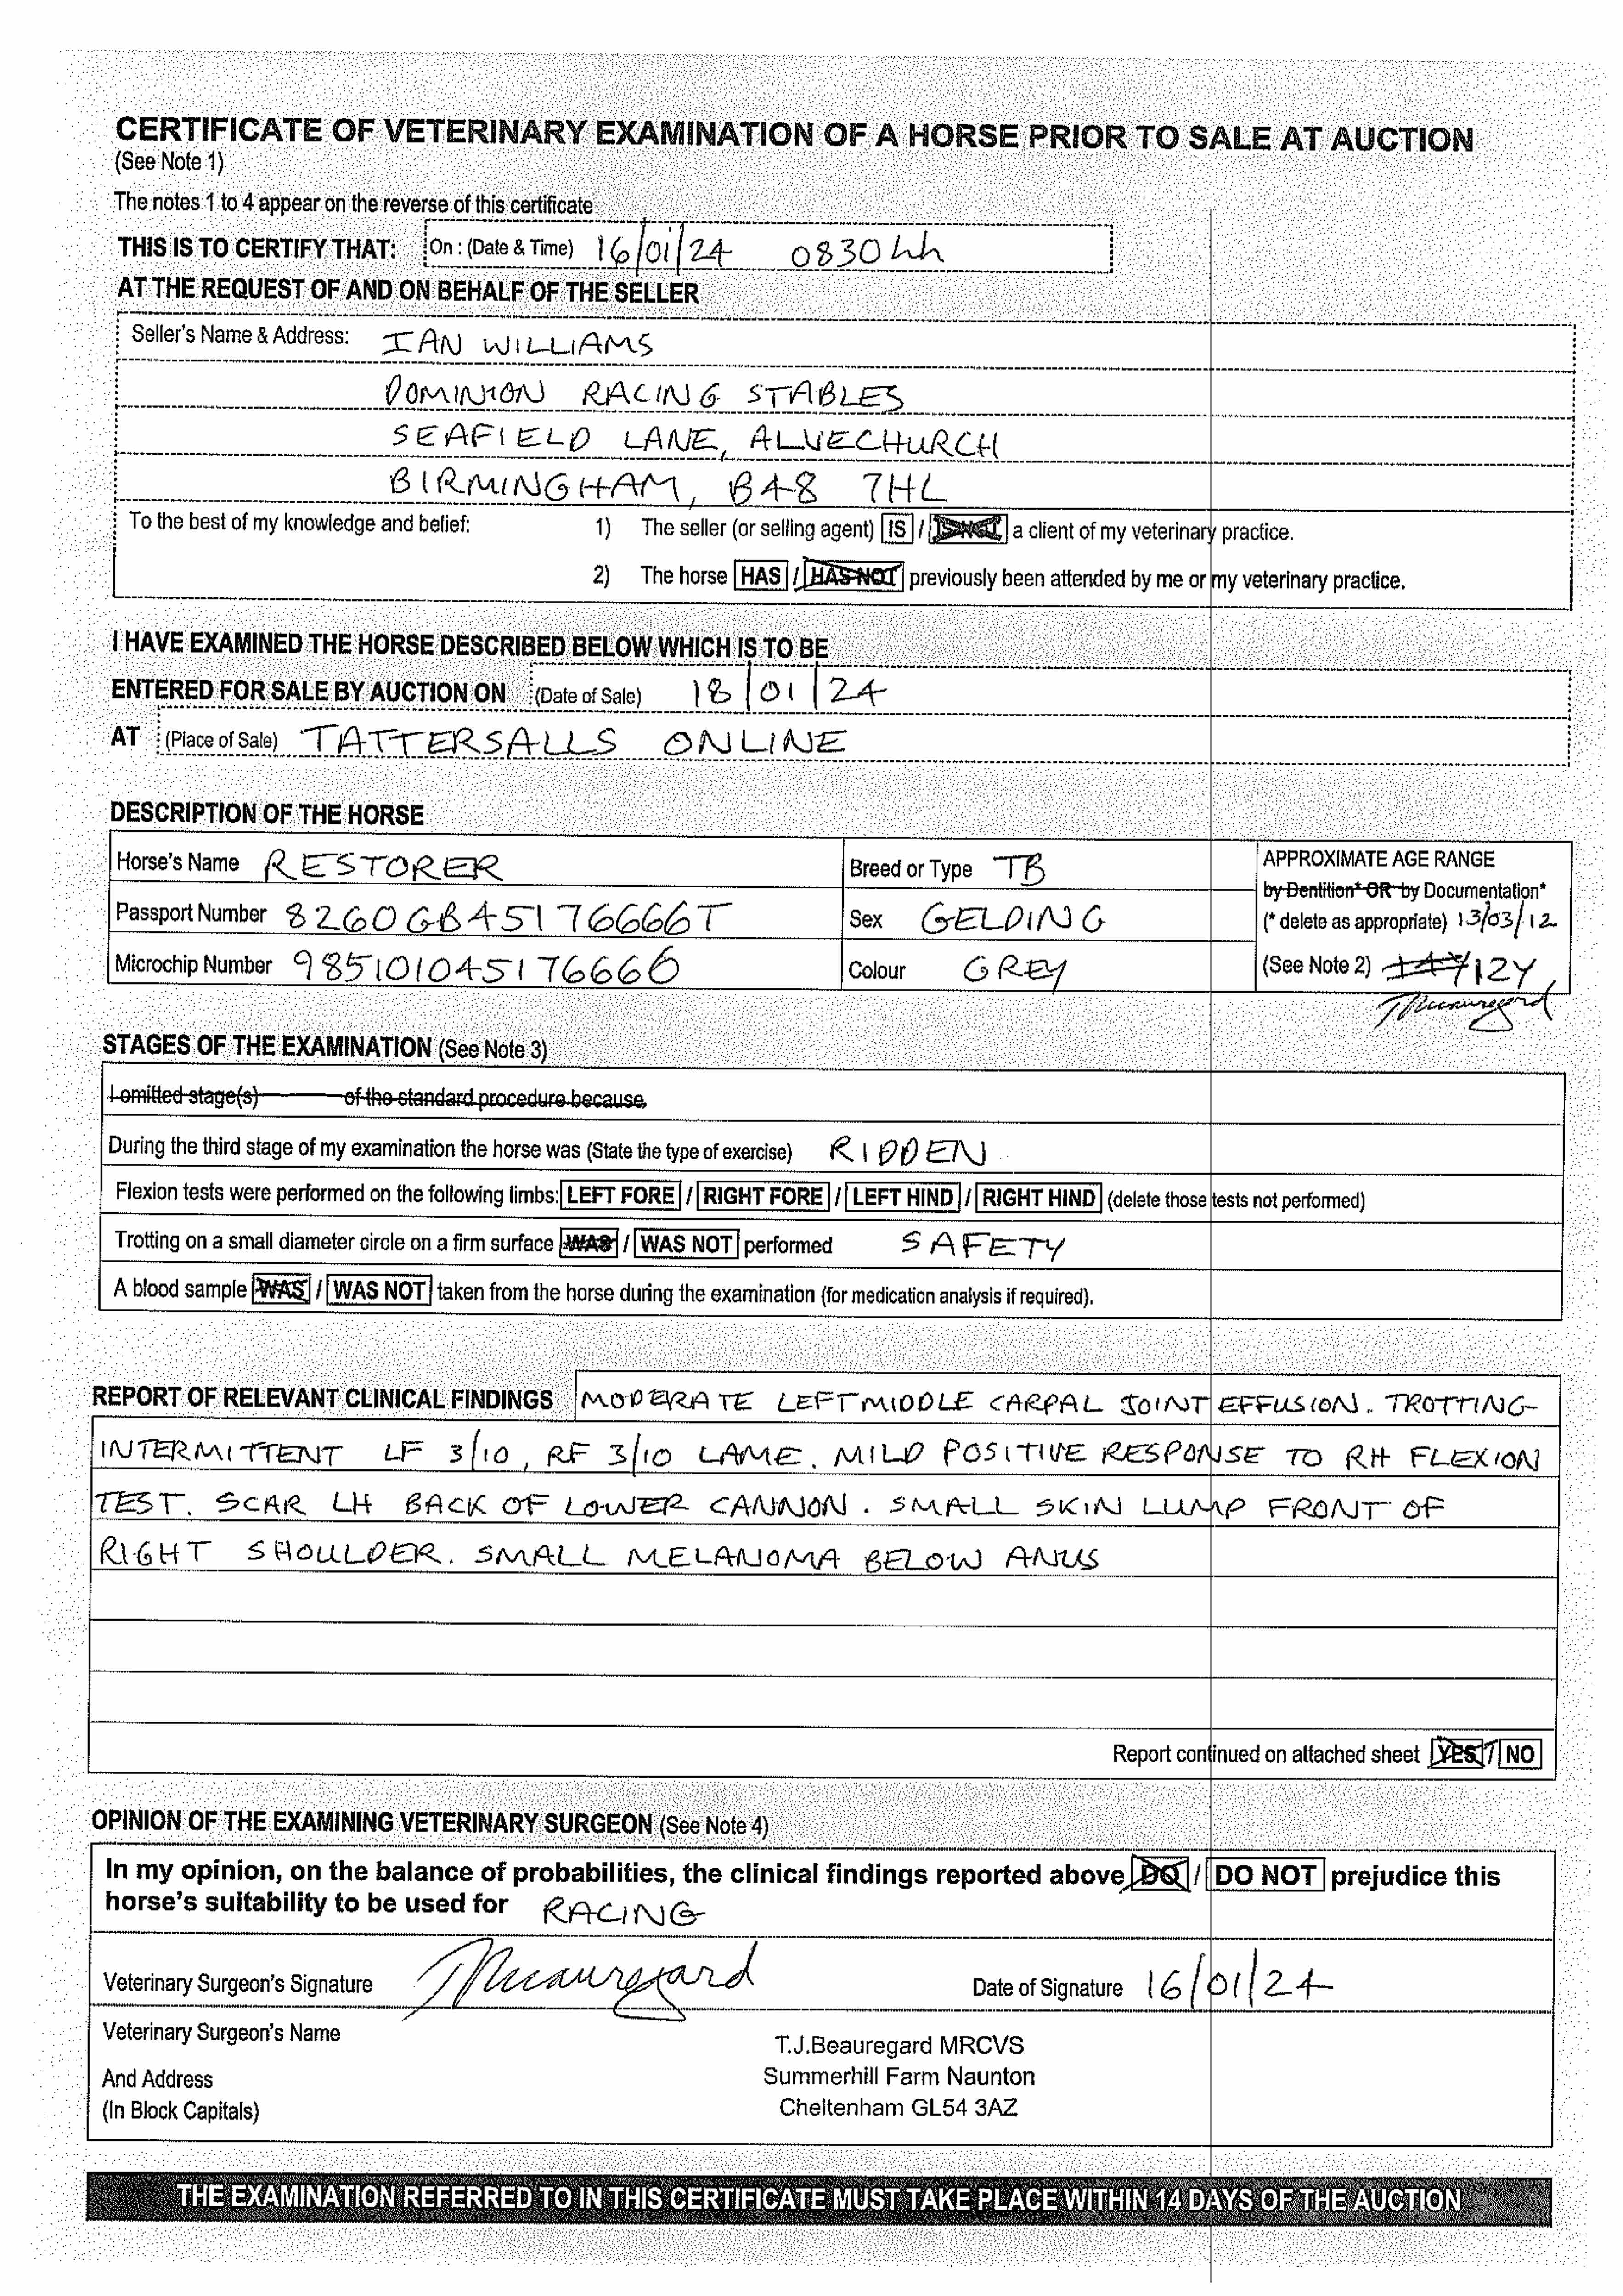 CERTIFICATE OF VETERINARY EXAMINATION OF A HORSE PRIOR TO SALE AT AUCTION
(See Note 1)
The notes 1 to 4 appear on the reverse of this certificate
THIS IS TO CERTIFY THAT: On : (Date & Time) 16/01/24 0830 hh
AT THE REQUEST OF AND ON BEHALF OF THE SELLER
Seller's Name & Address: IAN WILLIAMS
DOMINION RACING STABLES
SEAFIELD LANE, ALVECHURCH
BIRMINGHAM, B48 7HL
To the best of my knowledge and belief: 1) The seller (or selling agent) IS / IS NOT a client of my veterinary practice.
2) The horse HAS / HAS NOT previously been attended by me or my veterinary practice.
I HAVE EXAMINED THE HORSE DESCRIBED BELOW WHICH IS TO BE
ENTERED FOR SALE BY AUCTION ON (Date of Sale) 18/01/24
AT (Place of Sale) TATTERSALLS ONLINE
DESCRIPTION OF THE HORSE
Horse's Name RESTORER Breed or Type TB APPROXIMATE AGE RANGE
by Dentition* OR by Documentation*
Passport Number 8260GB45176666T Sex GELDING (* delete as appropriate) 13/03/12
Microchip Number 985101045176666 Colour GREY (See Note 2) 12Y
TBeauregard
STAGES OF THE EXAMINATION (See Note 3)
I omitted stage(s) of the standard procedure because
During the third stage of my examination the horse was (State the type of exercise) RIDDEN
Flexion tests were performed on the following limbs: LEFT FORE / RIGHT FORE / LEFT HIND / RIGHT HIND (delete those tests not performed)
Trotting on a small diameter circle on a firm surface WAS / WAS NOT performed SAFETY
A blood sample WAS / WAS NOT taken from the horse during the examination (for medication analysis if required).
REPORT OF RELEVANT CLINICAL FINDINGS MODERATE LEFT MIDDLE CARPAL JOINT EFFUSION. TROTTING
INTERMITTENT LF 3/10, RF 3/10 LAME. MILD POSITIVE RESPONSE TO RH FLEXION
TEST. SCAR LH BACK OF LOWER CANNON. SMALL SKIN LUMP FRONT OF
RIGHT SHOULDER. SMALL MELANOMA BELOW ANUS
Report continued on attached sheet YES / NO
OPINION OF THE EXAMINING VETERINARY SURGEON (See Note 4)
In my opinion, on the balance of probabilities, the clinical findings reported above DO / DO NOT prejudice this
horse's suitability to be used for RACING
Veterinary Surgeon's Signature TBeauregard Date of Signature 16/01/24
Veterinary Surgeon's Name
T.J.Beauregard MRCVS
And Address Summerhill Farm Naunton
(In Block Capitals) Cheltenham GL54 3AZ
THE EXAMINATION REFERRED TO IN THIS CERTIFICATE MUST TAKE PLACE WITHIN 14 DAYS OF THE AUCTION